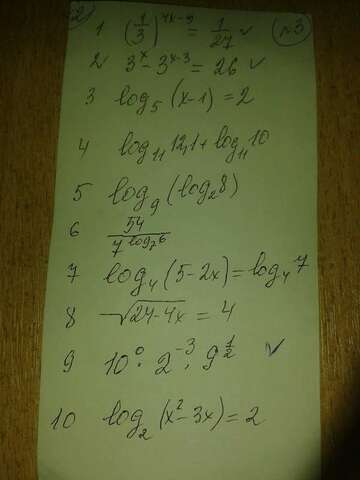 2) 1 (1/3)^(4x-9) = 1/27 ✓ (№3)
2 3^x - 3^(x-3) = 26 ✓
3 log₅(x-1) = 2
4 log₁₁12,1 + log₁₁10
5 log₉(log₂8)
6 54/7^(log₇6)
7 log₄(5-2x) = log₄7
8 -√(24-4x) = 4
9 10⁰ · 2⁻³ · 9^(1/2) ✓
10 log₂(x²-3x) = 2